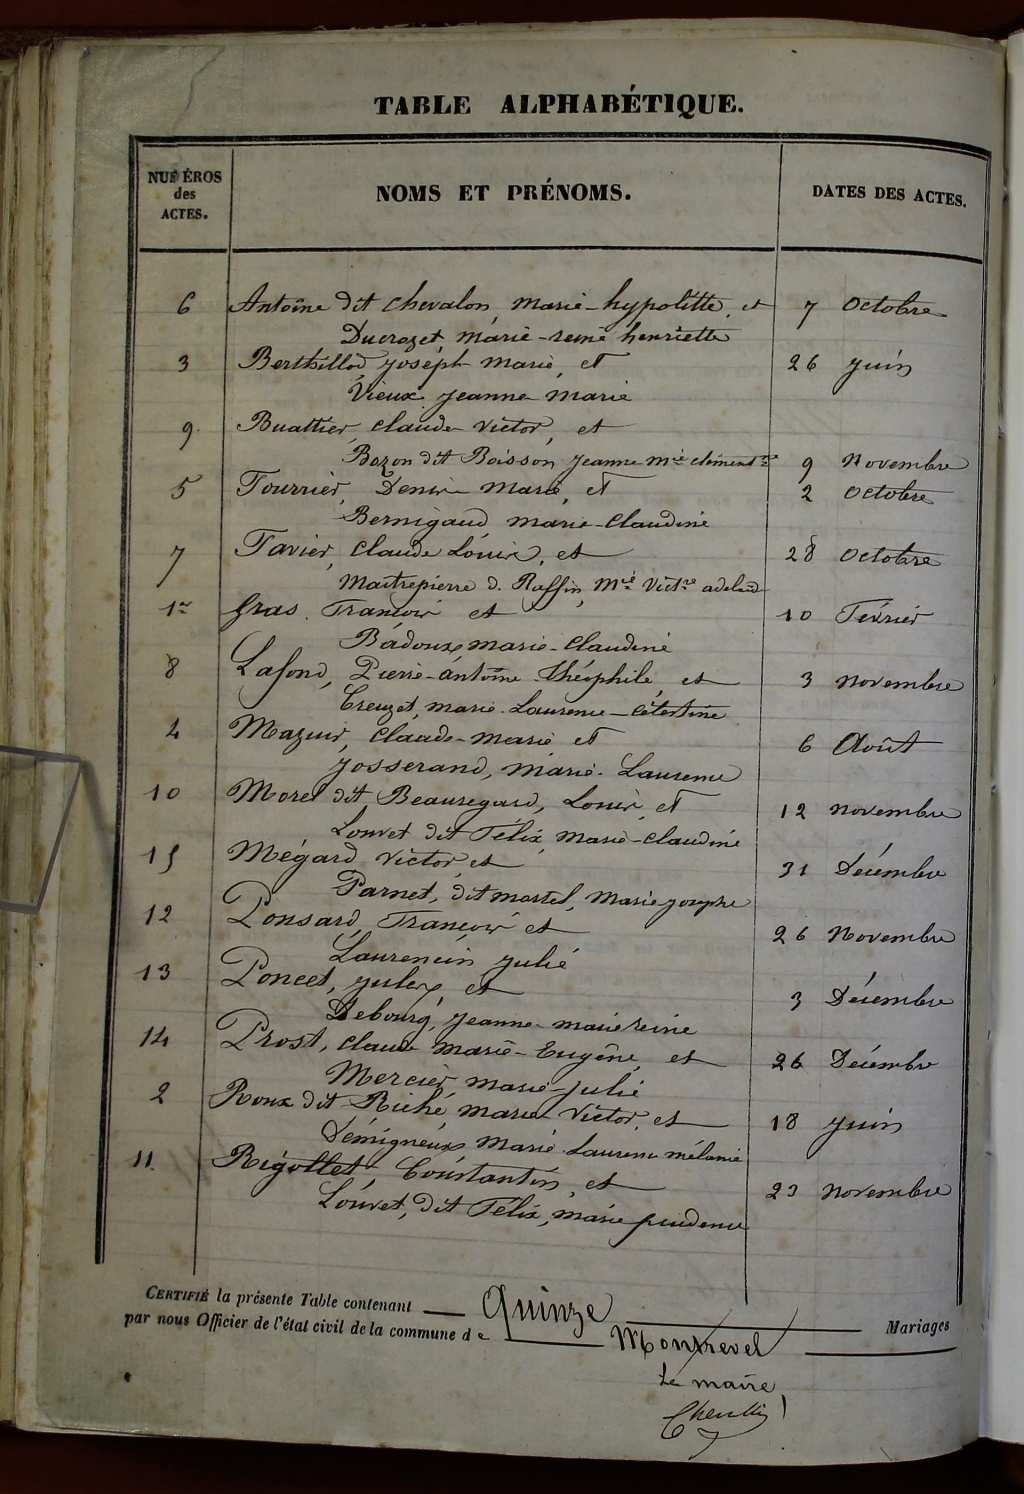 TABLE ALPHABÉTIQUE.
NUMÉROS des ACTES. NOMS ET PRÉNOMS. DATES DES ACTES.
6 Antoine dit Chevalon, Marie-hypolitte, et 7 Octobre
Ducrozet, Marie-reine henriette
3 Berthillod joséph Marie, et 26 juin
Vieux jeanne Marie
9 Buattier, Claude-Victor, et
Bozon dit Boisson jeanne Mie clémentne 9 Novembre
5 Fourrier, Denis Marie, et 2 Octobre
Bernigaud Marie-Claudine
7 Favier, Claude Louis, et 28 Octobre
Maitrepierre d. Raffin, Mie Victre adelaïde
1er Gras, François et 10 Février
Badoux, Marie-Claudine
8 Lafond, Pierre-antoine théophile, et 3 Novembre
Creuzet, Marie-Laurence-Célestine
4 Mazuir, Claude-Marie et 6 Août
Josserand, Marie-Laurence
10 Morel dit Beauregard, Louis, et 12 novembre
Louvet dit Félix, Marie-Claudine
15 Mégard Victor, et 31 Décembre
Parnet, dit martel, Marie josephe
12 Ponsard, François et 26 Novembre
Laurencin julie
13 Poncet, jules, et 3 Décembre
Debourg, jeanne-marie reine
14 Prost, Claude Marie-Eugène, et 26 Décembre
Mercier, marie-julie
2 Roux dit Riché, marie-Victor, et 18 juin
Démigneux Marie Laurence mélanie
11 Rigollet, Constantin, et 23 novembre
Louvet, dit Félix, marie prudence
CERTIFIÉ la présente Table contenant Quinze Mariages
par nous Officier de l'état civil de la commune de Montrevel
Le maire,